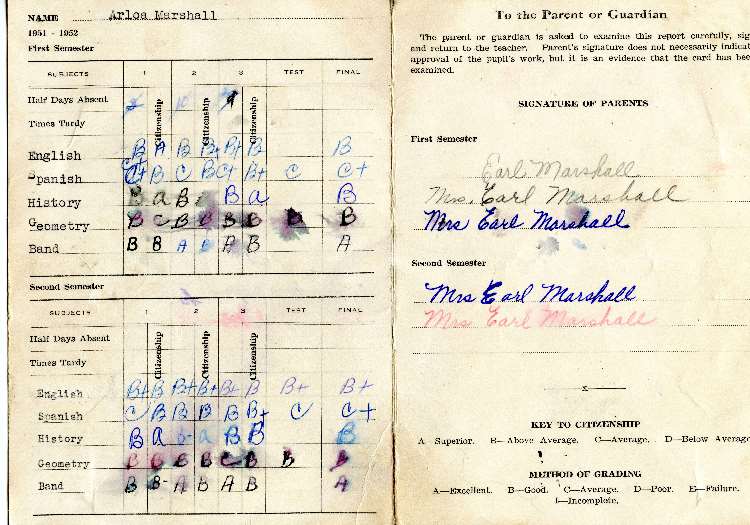 NAME Arloa Marshall
1951 - 1952
First Semester
SUBJECTS 1 2 3 TEST FINAL
Half Days Absent 10 9
Citizenship Citizenship Citizenship
Times Tardy
English B A B B+ B+ B B
Spanish C+ B C B C+ B+ C C+
History B a B B a B
Geometry B C B B B B B
Band B B A B A B A
Second Semester
SUBJECTS 1 2 3 TEST FINAL
Half Days Absent
Citizenship Citizenship Citizenship
Times Tardy
English B+ B B+ B+ B+ B B+ B+
Spanish C B B B B B+ C C+
History B a B a B B B
Geometry B B B B C B B B
Band B B- A B A B A
To the Parent or Guardian
The parent or guardian is asked to examine this report carefully, sig
and return to the teacher. Parent's signature does not necessarily indicat
approval of the pupil's work, but it is an evidence that the card has bee
examined.
SIGNATURE OF PARENTS
First Semester
Earl Marshall
Mrs. Earl Marshall
Mrs Earl Marshall
Second Semester
Mrs Earl Marshall
Mrs Earl Marshall
KEY TO CITIZENSHIP
A—Superior. B—Above Average. C—Average. D—Below Average
METHOD OF GRADING
A—Excellent. B—Good. C—Average. D—Poor. E—Failure.
I—Incomplete.